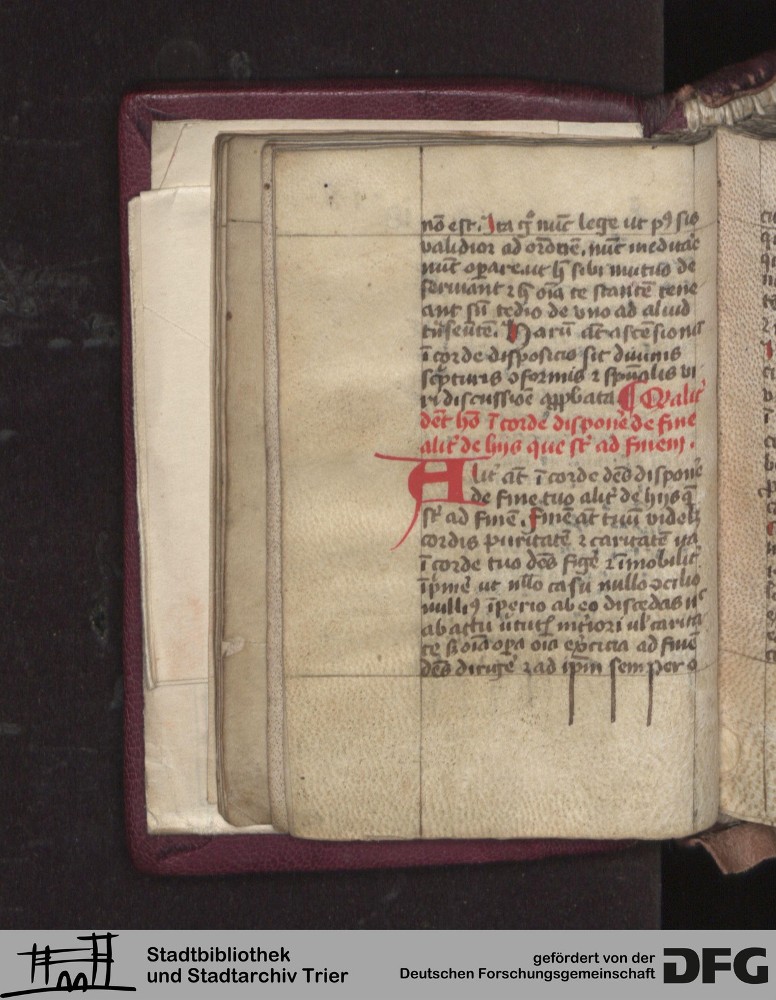 nō est. Ita q̄ nūc lege ut pꝯ sis
validior ad orōnē. nūc meditaē
nūc oparē. ut h̄ sibi mutuo de
serviant ⁊ h̄ oīa te stantē tene
ant sn̄ tedio de uno ad aliud
Harū āt ascesiones
ī corde disposicio sit divinis
scpturis ꝯformis ⁊ spūalis vi
ri discussiōe app̄bata ¶ Qualit̄
dēt hō ī corde disponē de fine
alit̄ de hijs que st̄ ad finem.
Alit̄ āt ī corde dēs disponē
de fine tuo alit̄ de hijs q̄
st̄ ad finē. Finē āt tuū videlꝫ
cordis puritatē ⁊ caritatē ita
ī corde tuo dēs figē ⁊ īmobilit̄
īpmē ut nllo casu nullo ꝯcilio
nulliꝯ īperio ab eo discedas n̄
ab actu v̄tutū in̄tiori ul̄ carita
te oīa opa oīa exercitia ad finē
dēs dirigē ⁊ ad ip̄m semper ꝯ
Stadtbibliothek
und Stadtarchiv Trier
gefördert von der
Deutschen Forschungsgemeinschaft
DFG